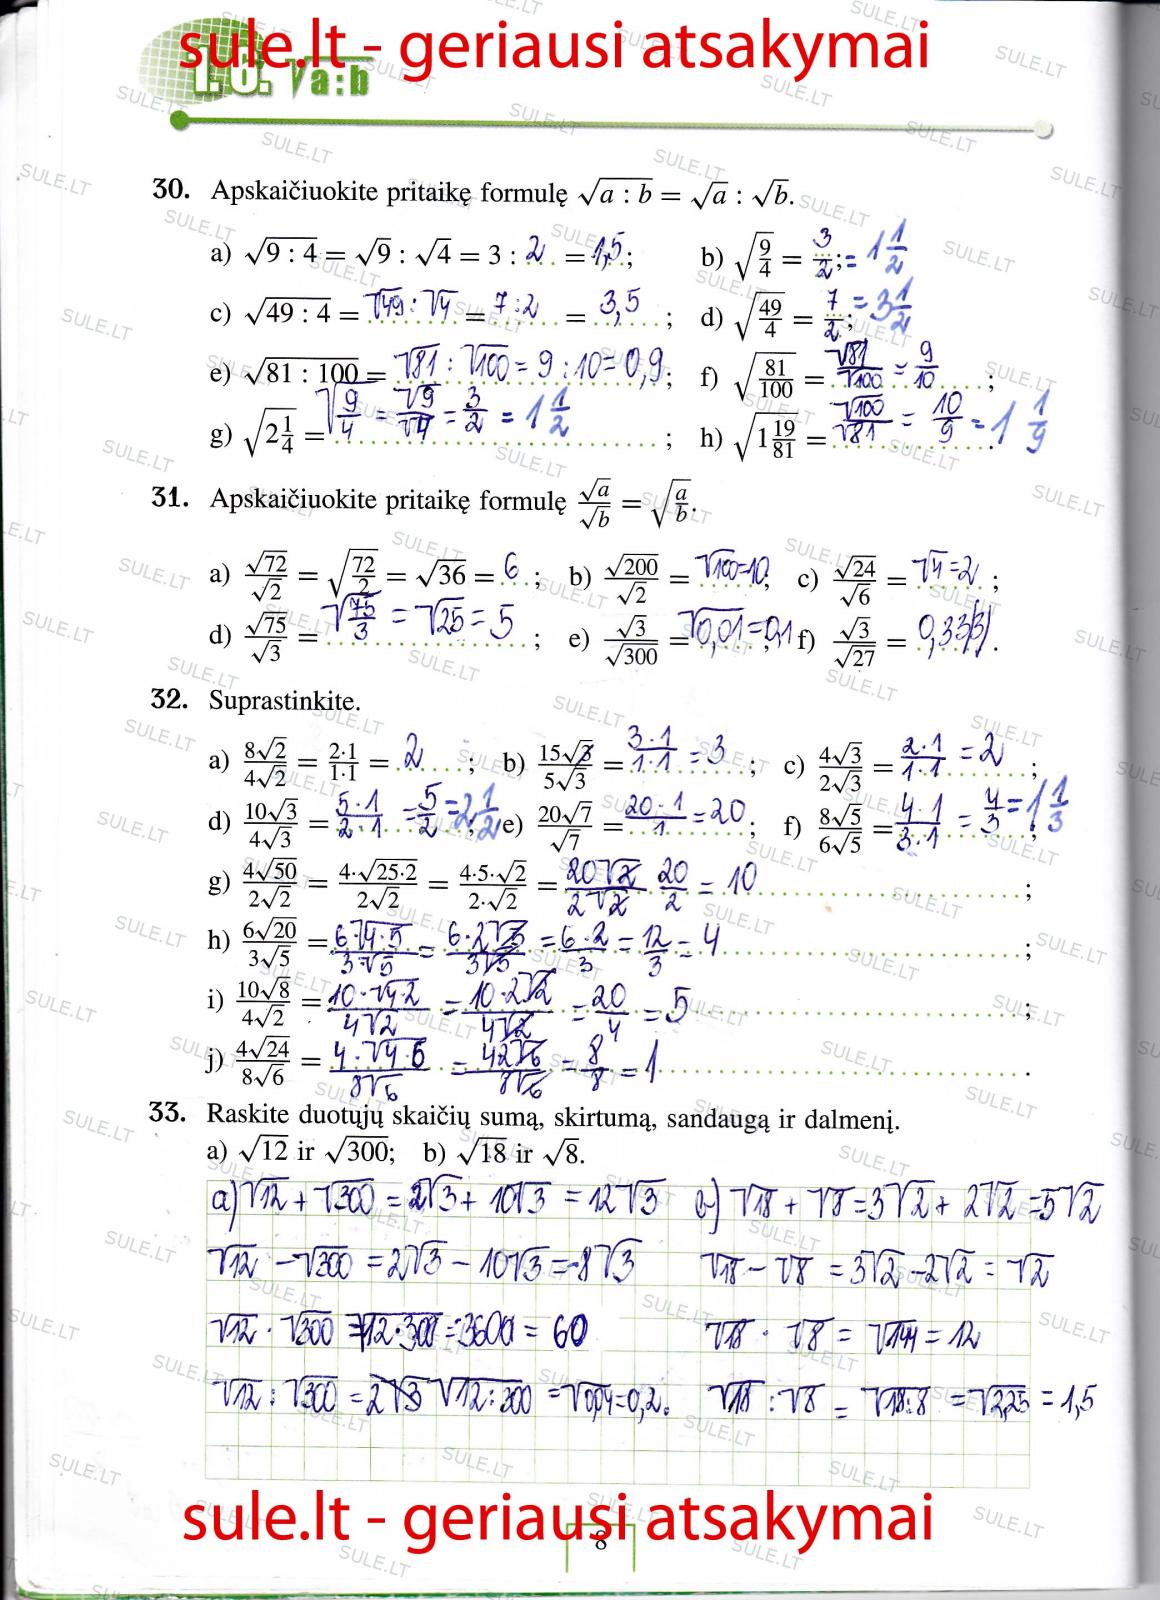 sule.lt - geriausi atsakymai
1.6. √a:b
30. Apskaičiuokite pritaikę formulę √(a : b) = √a : √b.
a) √(9 : 4) = √9 : √4 = 3 : 2 = 1,5; b) √(9/4) = 3/2; = 1 1/2
c) √(49 : 4) = √49 : √4 = 7 : 2 = 3,5; d) √(49/4) = 7/2; = 3 1/2
e) √(81 : 100) = √81 : √100 = 9 : 10 = 0,9; f) √(81/100) = √81/√100 = 9/10;
g) √(2 1/4) = √(9/4) = √9/√4 = 3/2 = 1 1/2; h) √(1 19/81) = √100/√81 = 10/9 = 1 1/9.
31. Apskaičiuokite pritaikę formulę √a/√b = √(a/b).
a) √72/√2 = √(72/2) = √36 = 6; b) √200/√2 = √100 = 10; c) √24/√6 = √4 = 2;
d) √75/√3 = √(75/3) = √25 = 5; e) √3/√300 = √0,01 = 0,1; f) √3/√27 = 0,33(3).
32. Suprastinkite.
a) 8√2/4√2 = 2·1/1·1 = 2; b) 15√3/5√3 = 3·1/1·1 = 3; c) 4√3/2√3 = 2·1/1·1 = 2;
d) 10√3/4√3 = 5·1/2·1 = 5/2 = 2 1/2; e) 20√7/√7 = 20·1/1 = 20; f) 8√5/6√5 = 4·1/3·1 = 4/3 = 1 1/3;
g) 4√50/2√2 = 4·√(25·2)/2√2 = 4·5·√2/2·√2 = 20√2/2√2 20/2 = 10;
h) 6√20/3√5 = 6√(4·5)/3·√5 = 6·2√5/3√5 = 6·2/3 = 12/3 = 4;
i) 10√8/4√2 = 10·√(4·2)/4√2 = 10·2√2/4√2 = 20/4 = 5;
j) 4√24/8√6 = 4·√(4·6)/8√6 = 42√6/8√6 = 8/8 = 1.
33. Raskite duotųjų skaičių sumą, skirtumą, sandaugą ir dalmenį.
a) √12 ir √300; b) √18 ir √8.
a) √12 + √300 = 2√3 + 10√3 = 12√3 b) √18 + √8 = 3√2 + 2√2 = 5√2
√12 - √300 = 2√3 - 10√3 = -8√3 √18 - √8 = 3√2 - 2√2 = √2
√12 · √300 = √(12·300) = √3600 = 60 √18 · √8 = √144 = 12
√12 : √300 = 2√3 √(12:300) = √0,04 = 0,2. √18 : √8 = √(18:8) = √2,25 = 1,5
sule.lt - geriausi atsakymai
8
SULE.LT